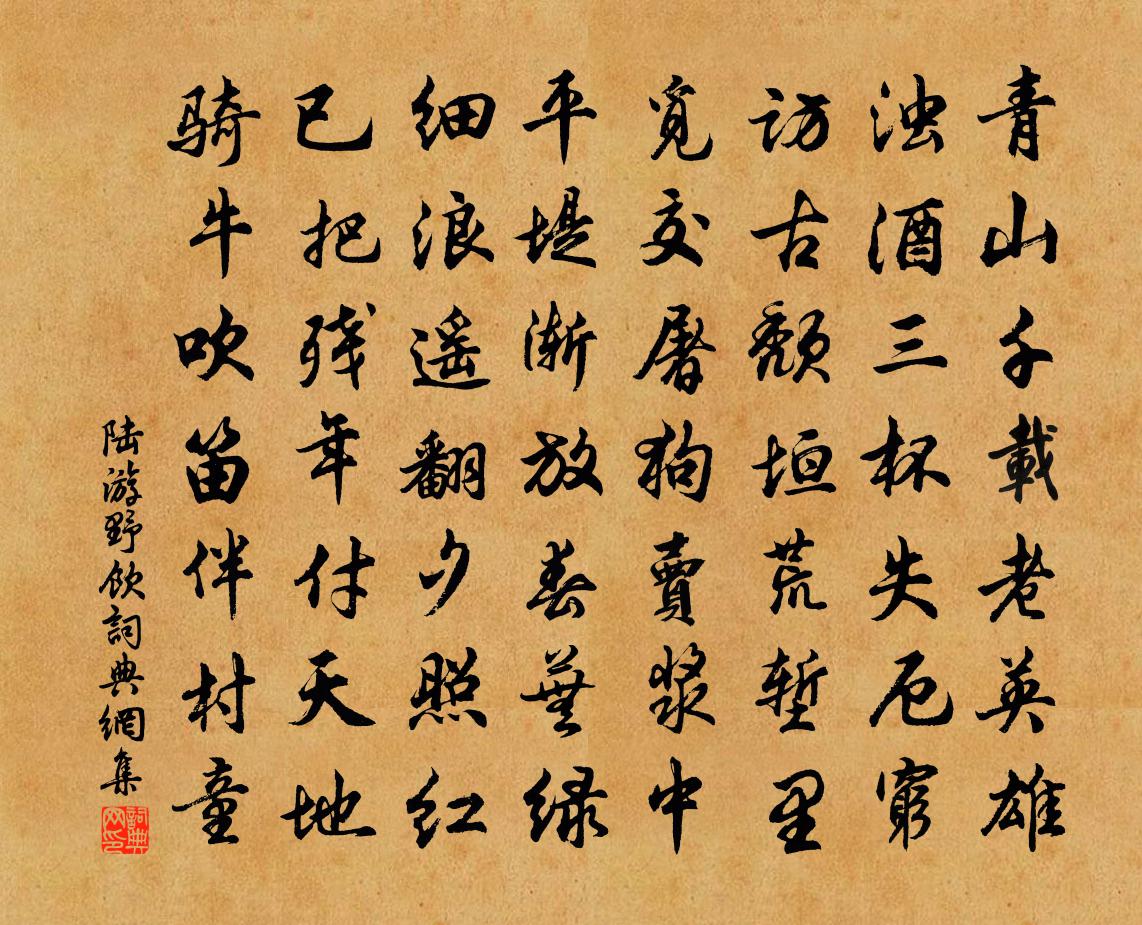 青山千載老英雄
浊酒三杯失厄窮
访古颓垣荒堑里
覓交屠狗賣漿中
平堤渐放春蕪绿
细浪遥翻夕照红
已把残年付天地
骑牛吹笛伴村童
陆游野飲詞典網集
詞典网印